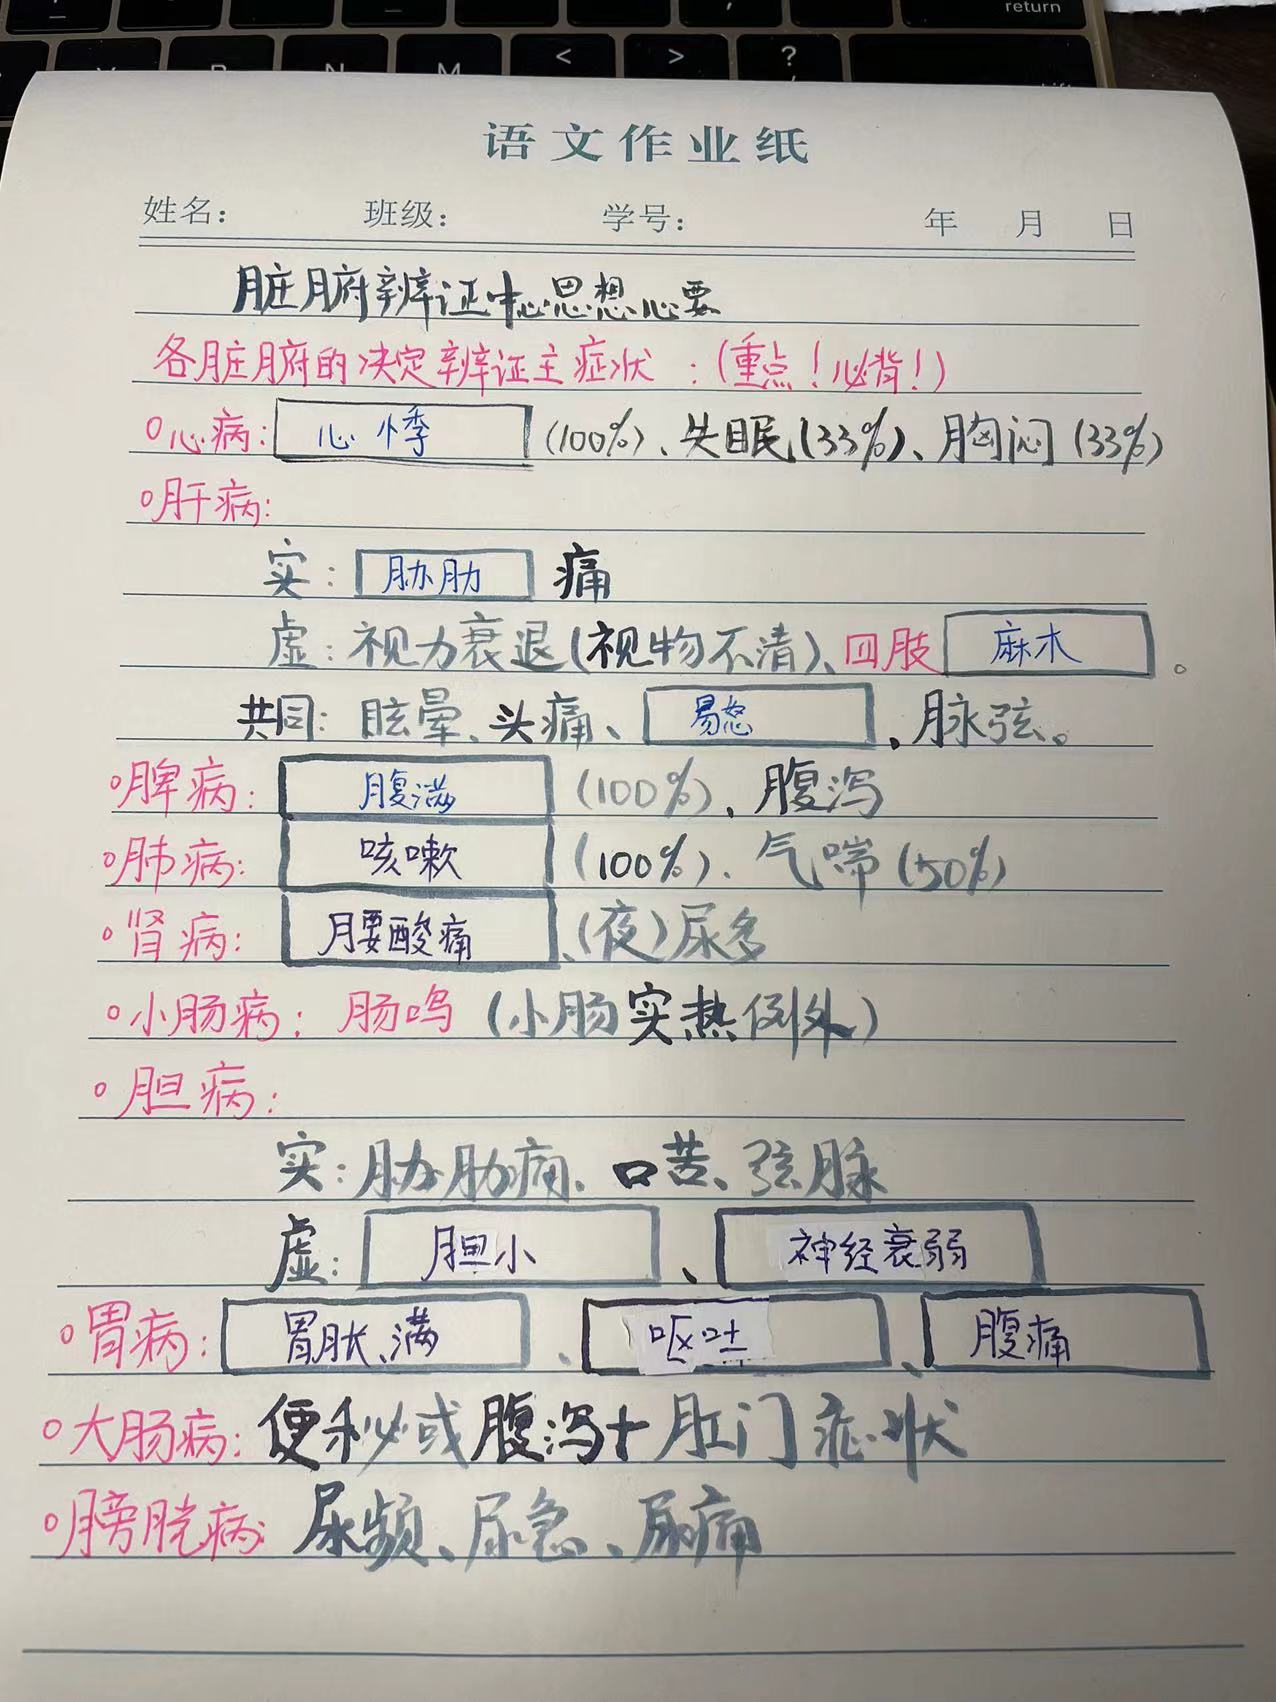 return
< > ?
N M
语文作业纸
姓名： 班级： 学号： 年 月 日
脏腑辨证中心思想心要
各脏腑的决定辨证主症状：（重点！必背！）
心病：心悸（100%）、失眠（33%）、胸闷（33%）
肝病：
实：胁肋痛
虚：视力衰退（视物不清）、四肢麻木。
共同：眩晕、头痛、易怒、脉弦。
脾病：腹满（100%）、腹泻
肺病：咳嗽（100%）、气喘（50%）
肾病：腰酸痛、（夜）尿多
小肠病：肠鸣（小肠实热例外）
胆病：
实：胁肋痛、口苦、弦脉
虚：胆小、神经衰弱
胃病：胃胀、满、呕吐、腹痛
大肠病：便秘或腹泻+肛门症状
膀胱病：尿频、尿急、尿痛